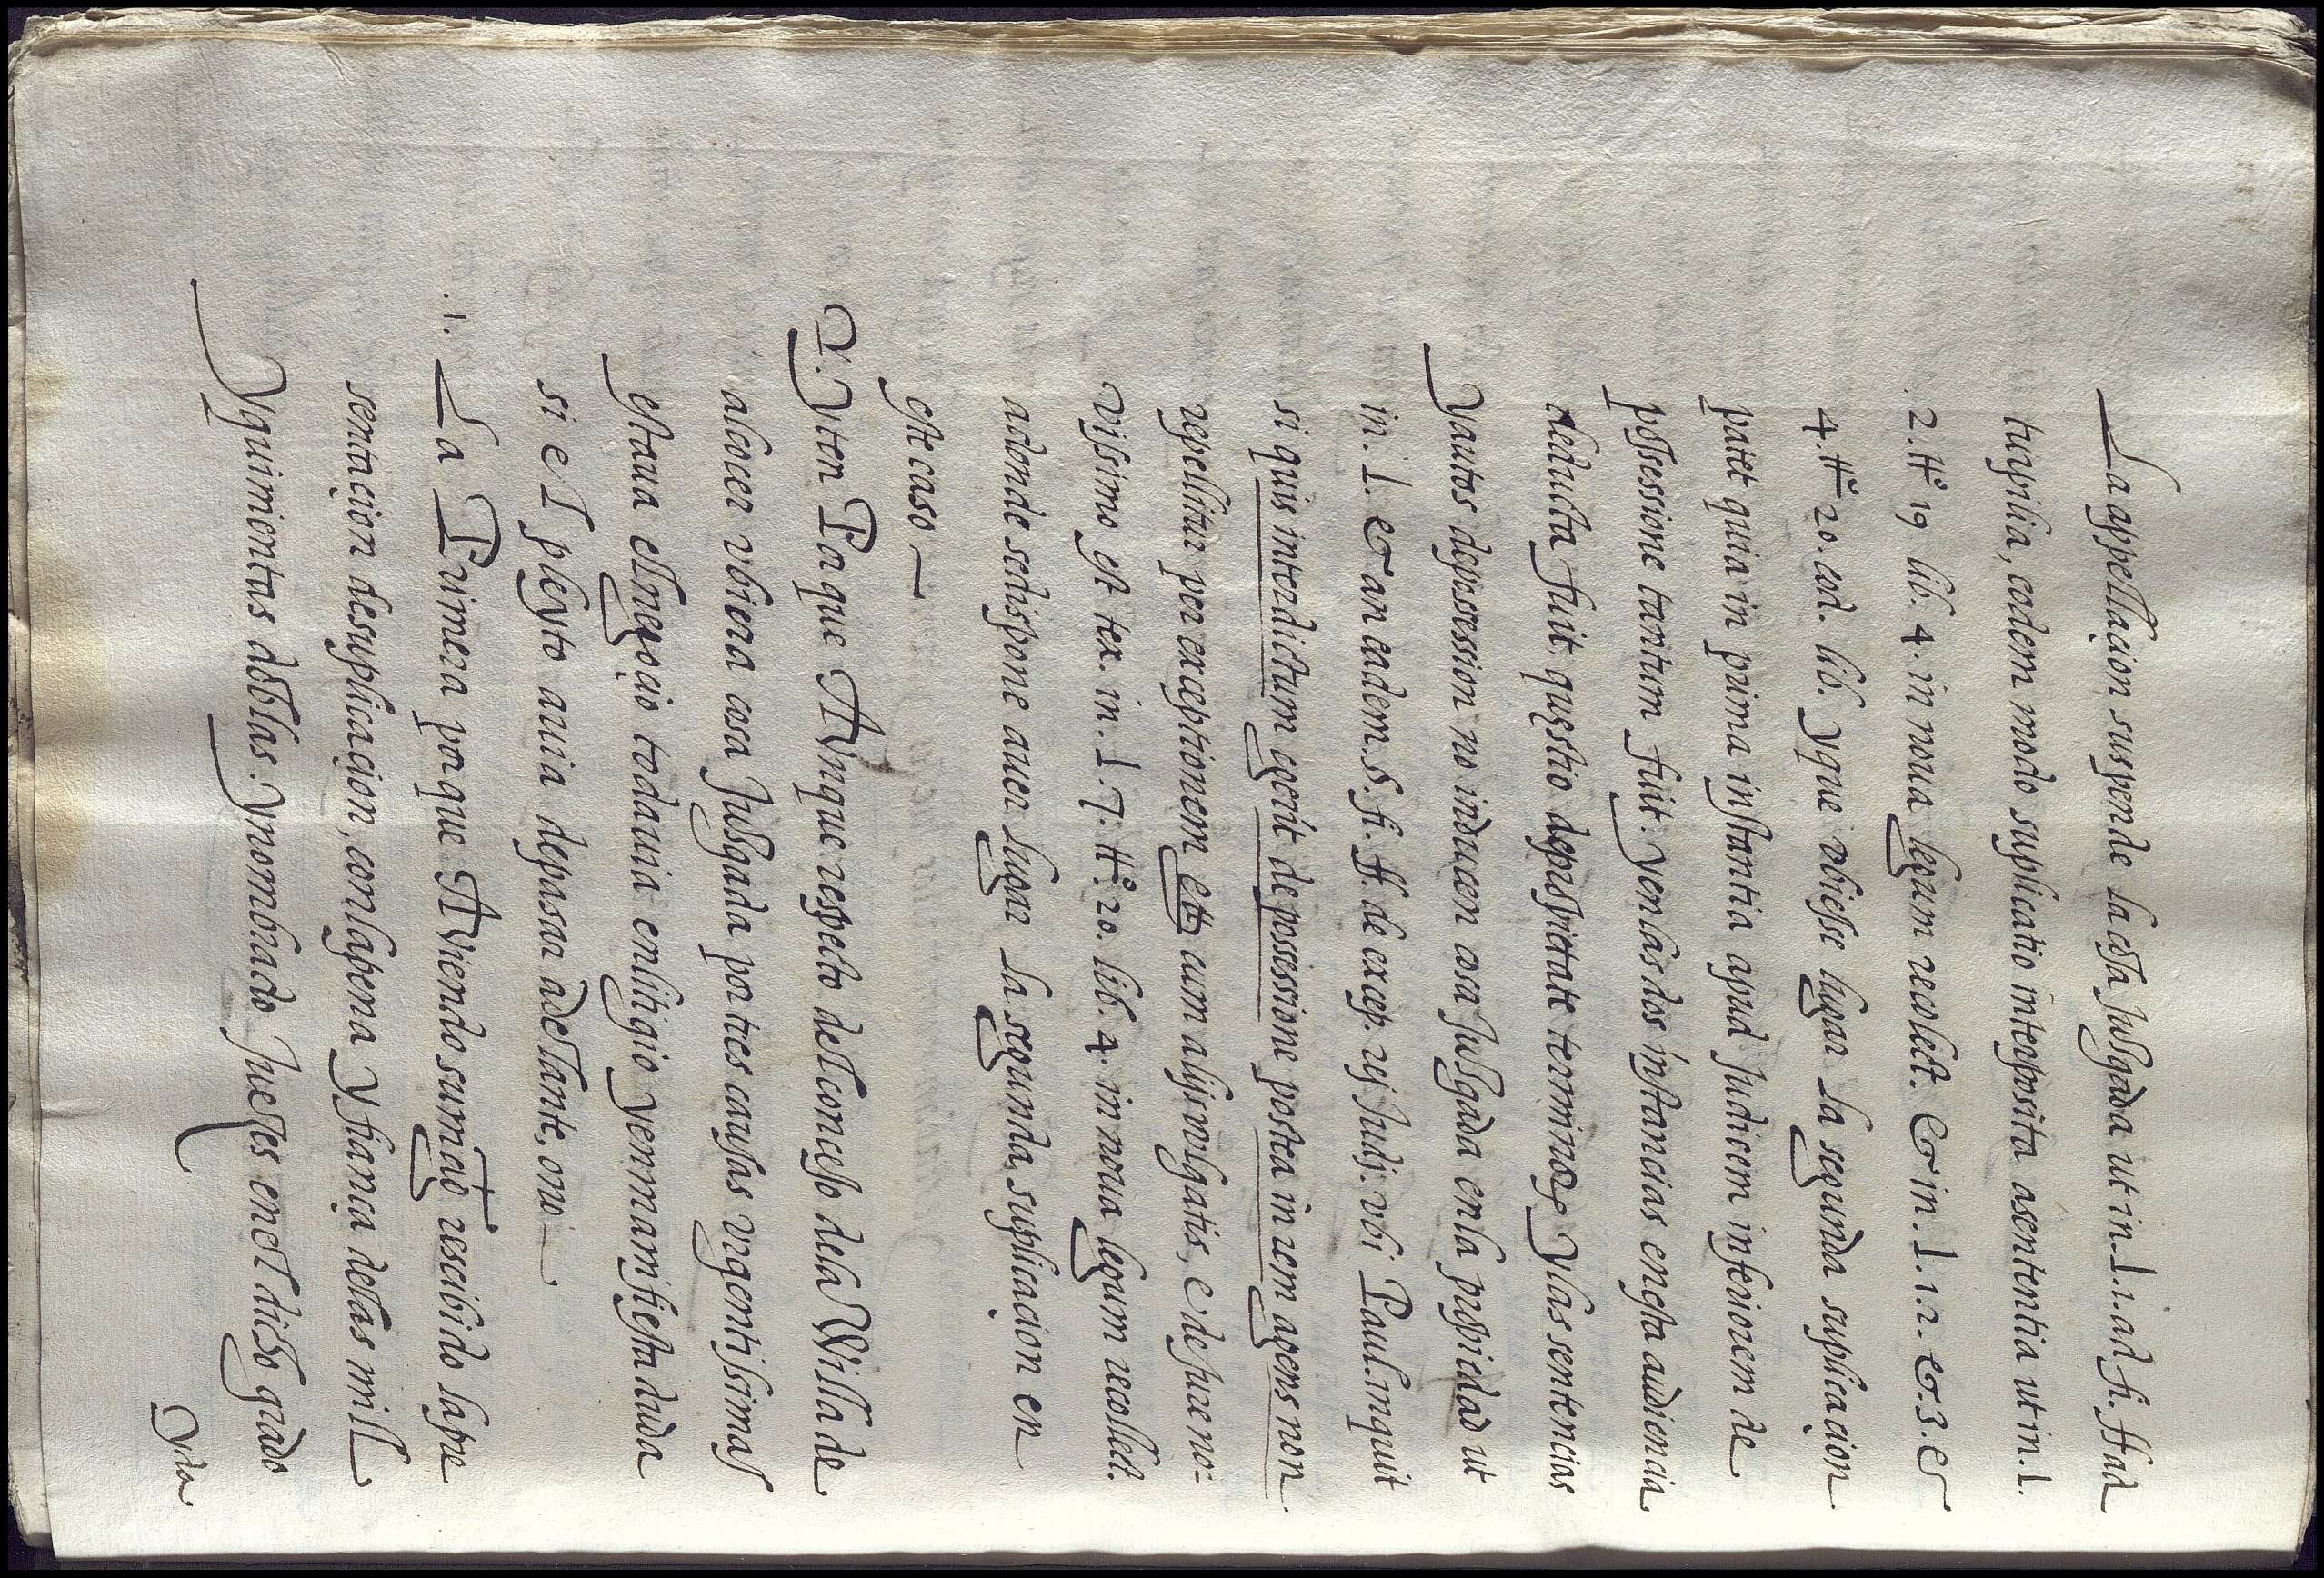 La appellaçion suspende la cosa Jusgada ut in. l. 1. ad fi. ff ad
turpilia, eadem modo suplicatio interposita asententia ut in. l.
2. tt.º 19 lib. 4. in noua legum recolect. & in. l. 1. 2. &. 3. &
4. tt.º 20. eod. lib. Yque obiesse lugar la segunda suplicaçion
patet quia in prima instantia apud Judicem inferiorem de
possessione tantum fuit. Yenlas dos instancias enesta audiencia
deducta fuit quęstio depropietate terminos Ylas sentencias
Yautos deposession no inducen cosa Jusgada enla propiedad ut
in. l. & an eadem. §. fi. ff. de excep. rej Judi. vbi Paul. inquit
si quis interdictum egerit de possessione postea in rem agens non
repellitur per exceptionem cum alijs vulgatis, e de Jure no=
vissimo est tex. in. l. 7. tt.º 20. lib. 4. in noua legum recollect.
adonde sedispone auer lugar la segunda suplicaçion en
este caso —
V. Yten Porque Avnque respecto delconcejo dela Villa de
alcoçer vbiera cosa Jusgada por tres causas vrgentissimas
estaua elnegoçio todauia enlitigio Yenmanifiesta duda
si el pleyto auia depasar adelante, ono —
.1. La Primera porque Aviendo su mag.t resçibido lapre
sentaçion desuplicaçion, conlapena Yfiança delas mill
Yquinientas doblas. Ynombrado Jueçes enel dicho grado
Yda